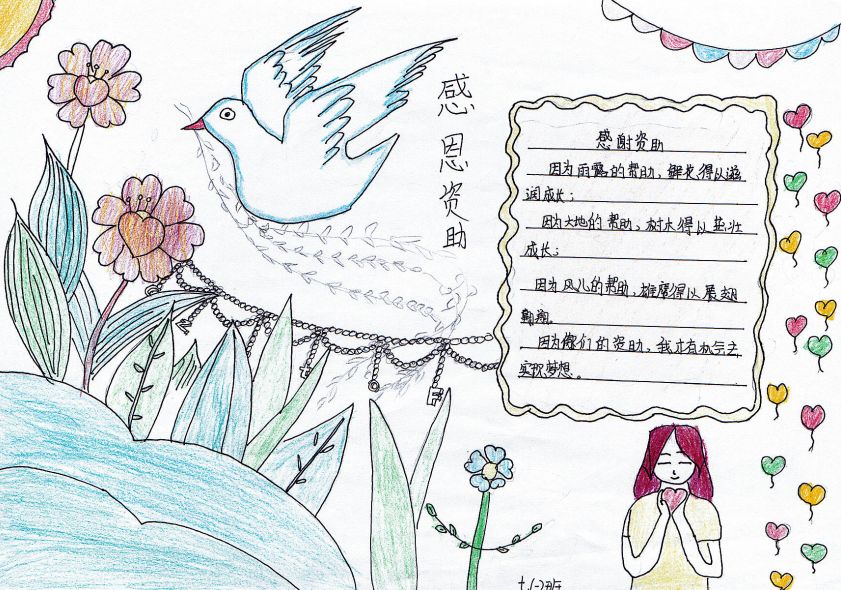 感恩资助
感谢资助
因为雨露的帮助、鲜花得以滋
润成长；
因为大地的帮助、树木得以茁壮
成长；
因为风儿的帮助、雄鹰得以展翅
翱翔。
因为您们的资助、我才有机会去
实现梦想。